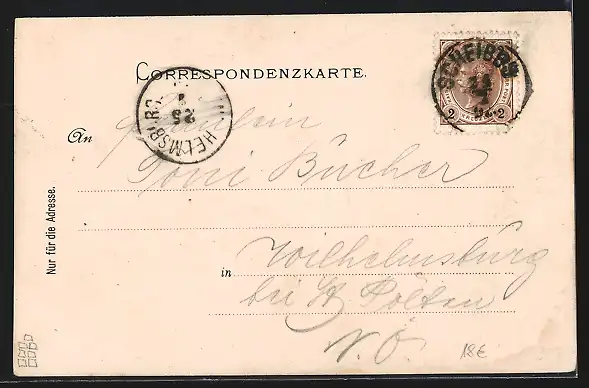 CORRESPONDENZKARTE.
SCHEIBBS
2 2
HELMSBURG
25
An Fräulein
Toni Bücher
Nur für die Adresse.
in Wilhelmsburg
bei St Pölten
N. Ö.
18€